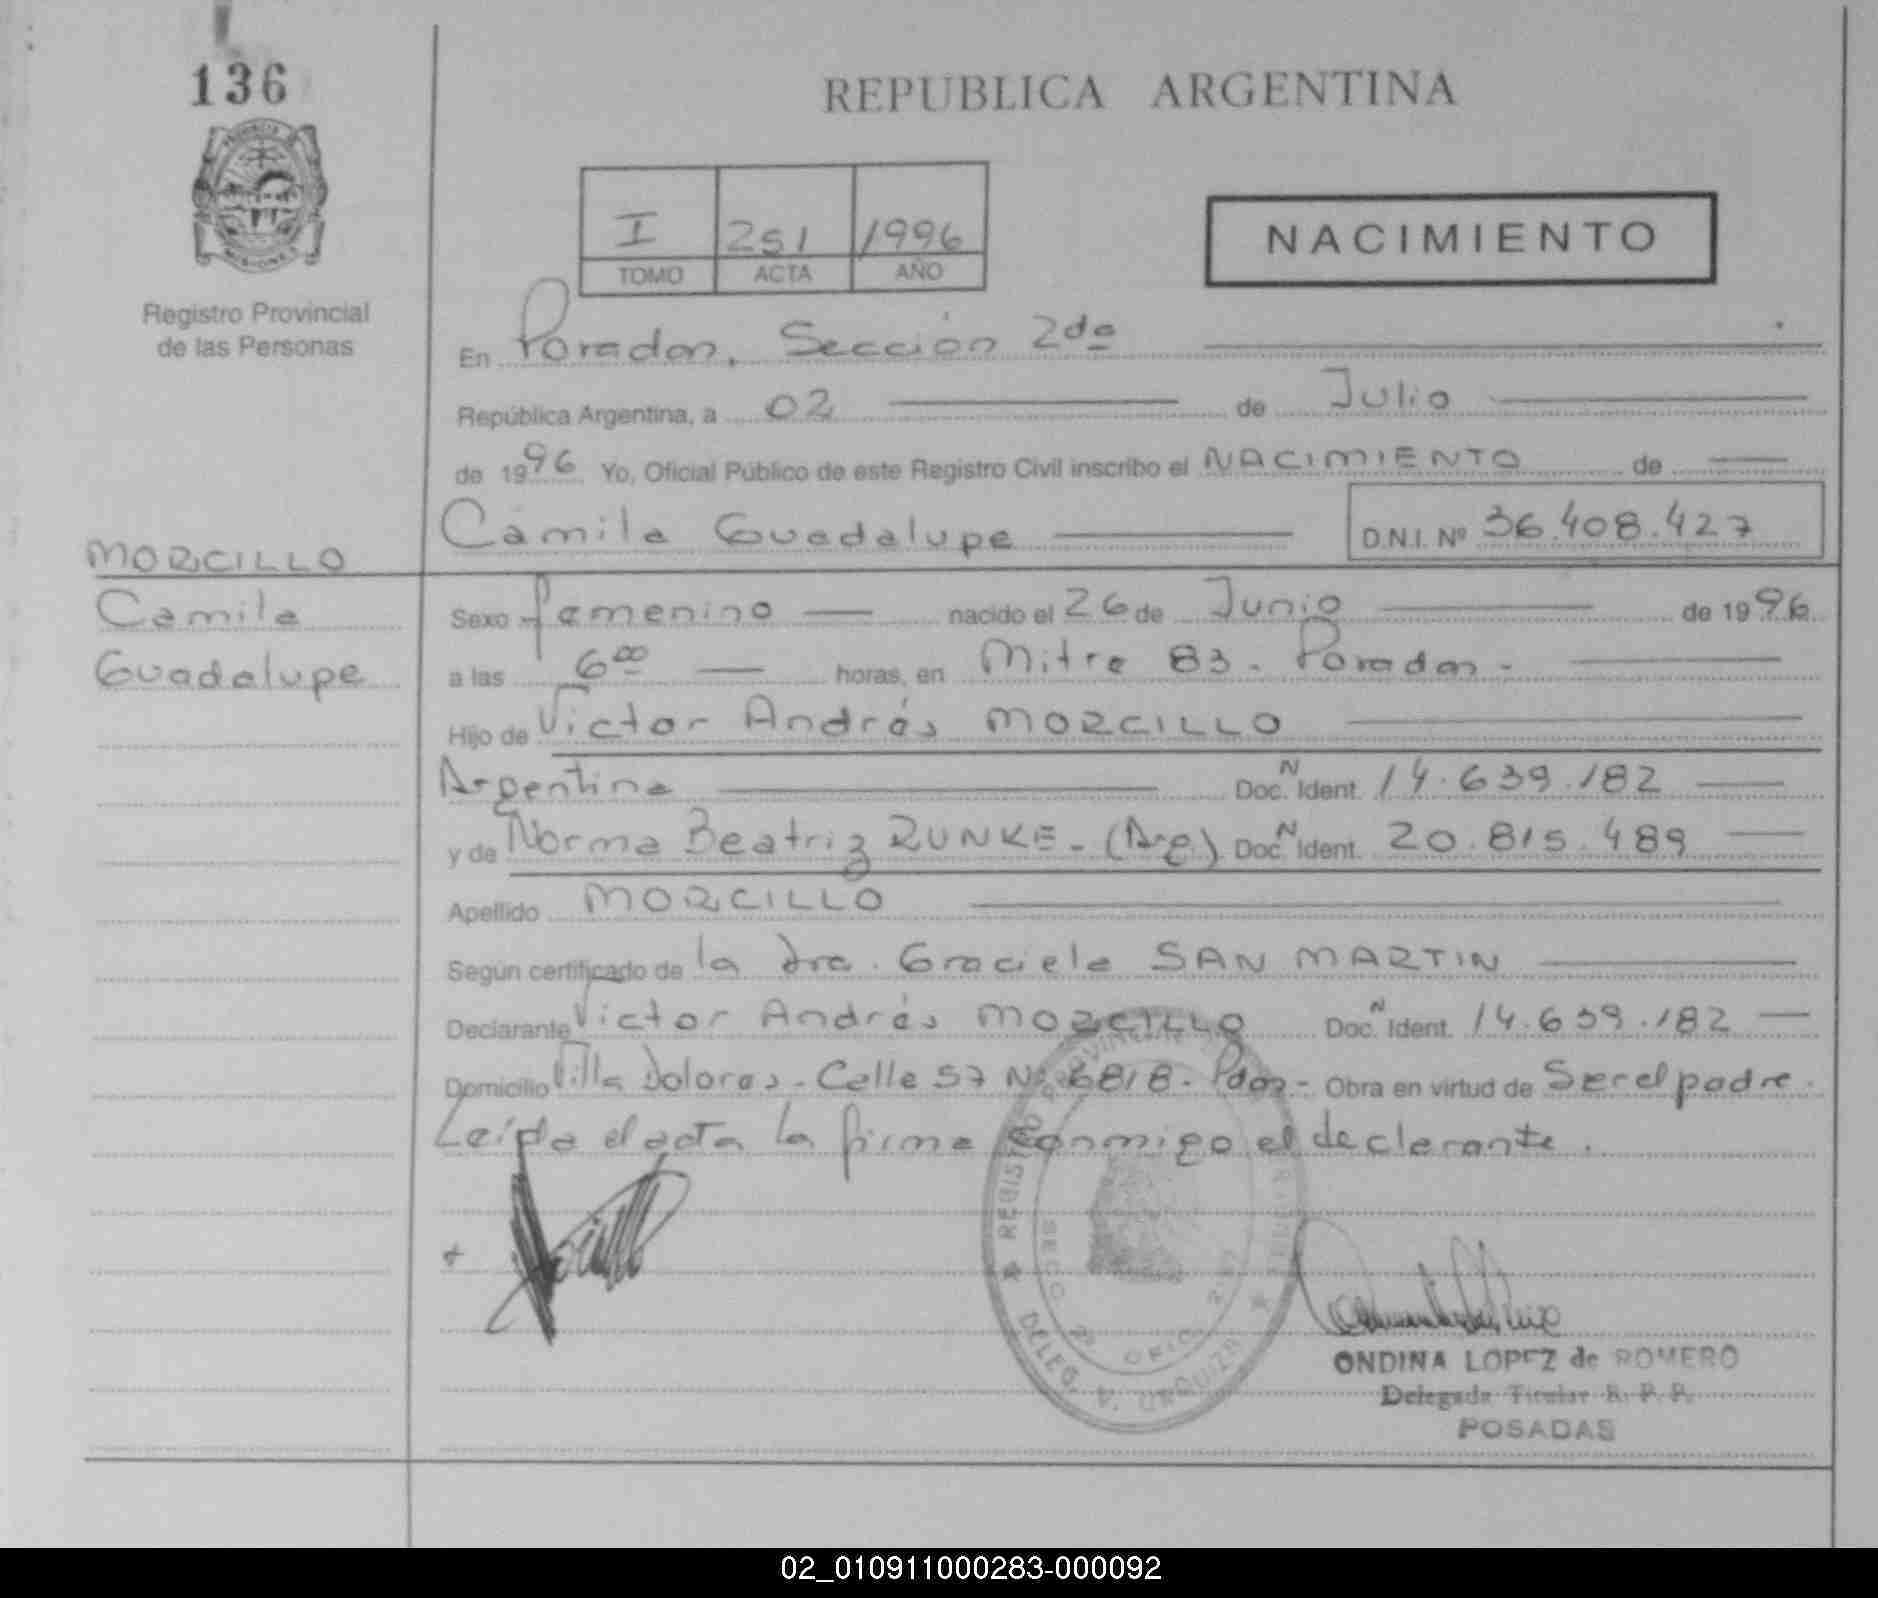 136
REPUBLICA ARGENTINA
I 251 1996
TOMO ACTA AÑO
NACIMIENTO
Registro Provincial
de las Personas
En Posadas, Sección 2da
República Argentina, a 02 de Julio
de 1996 Yo, Oficial Público de este Registro Civil inscribo el NACIMIENTO de
Camila Guadalupe D.N.I. Nº 36.408.427
MORCILLO
Camila
Guadalupe
Sexo femenino nacido el 26 de Junio de 1996
a las 600 horas, en Mitre 83 - Posadas -
Hijo de Victor Andrés MORCILLO
Argentina Doc. N Ident. 14.639.182
y de Norma Beatriz RUNKE - (Arg.) Doc. N Ident. 20.815.489
Apellido MORCILLO
Según certificado de la Dra. Graciela SAN MARTIN
Declarante Victor Andrés MORCILLO Doc. N Ident. 14.639.182
Domicilio Villa Dolores - Calle 57 Nº 6818 - Pdas - Obra en virtud de Ser el padre.
Leída el acta la firma conmigo el declarante.
ONDINA LOPEZ de ROMERO
Delegada Titular R. P. P.
POSADAS
02_010911000283-000092